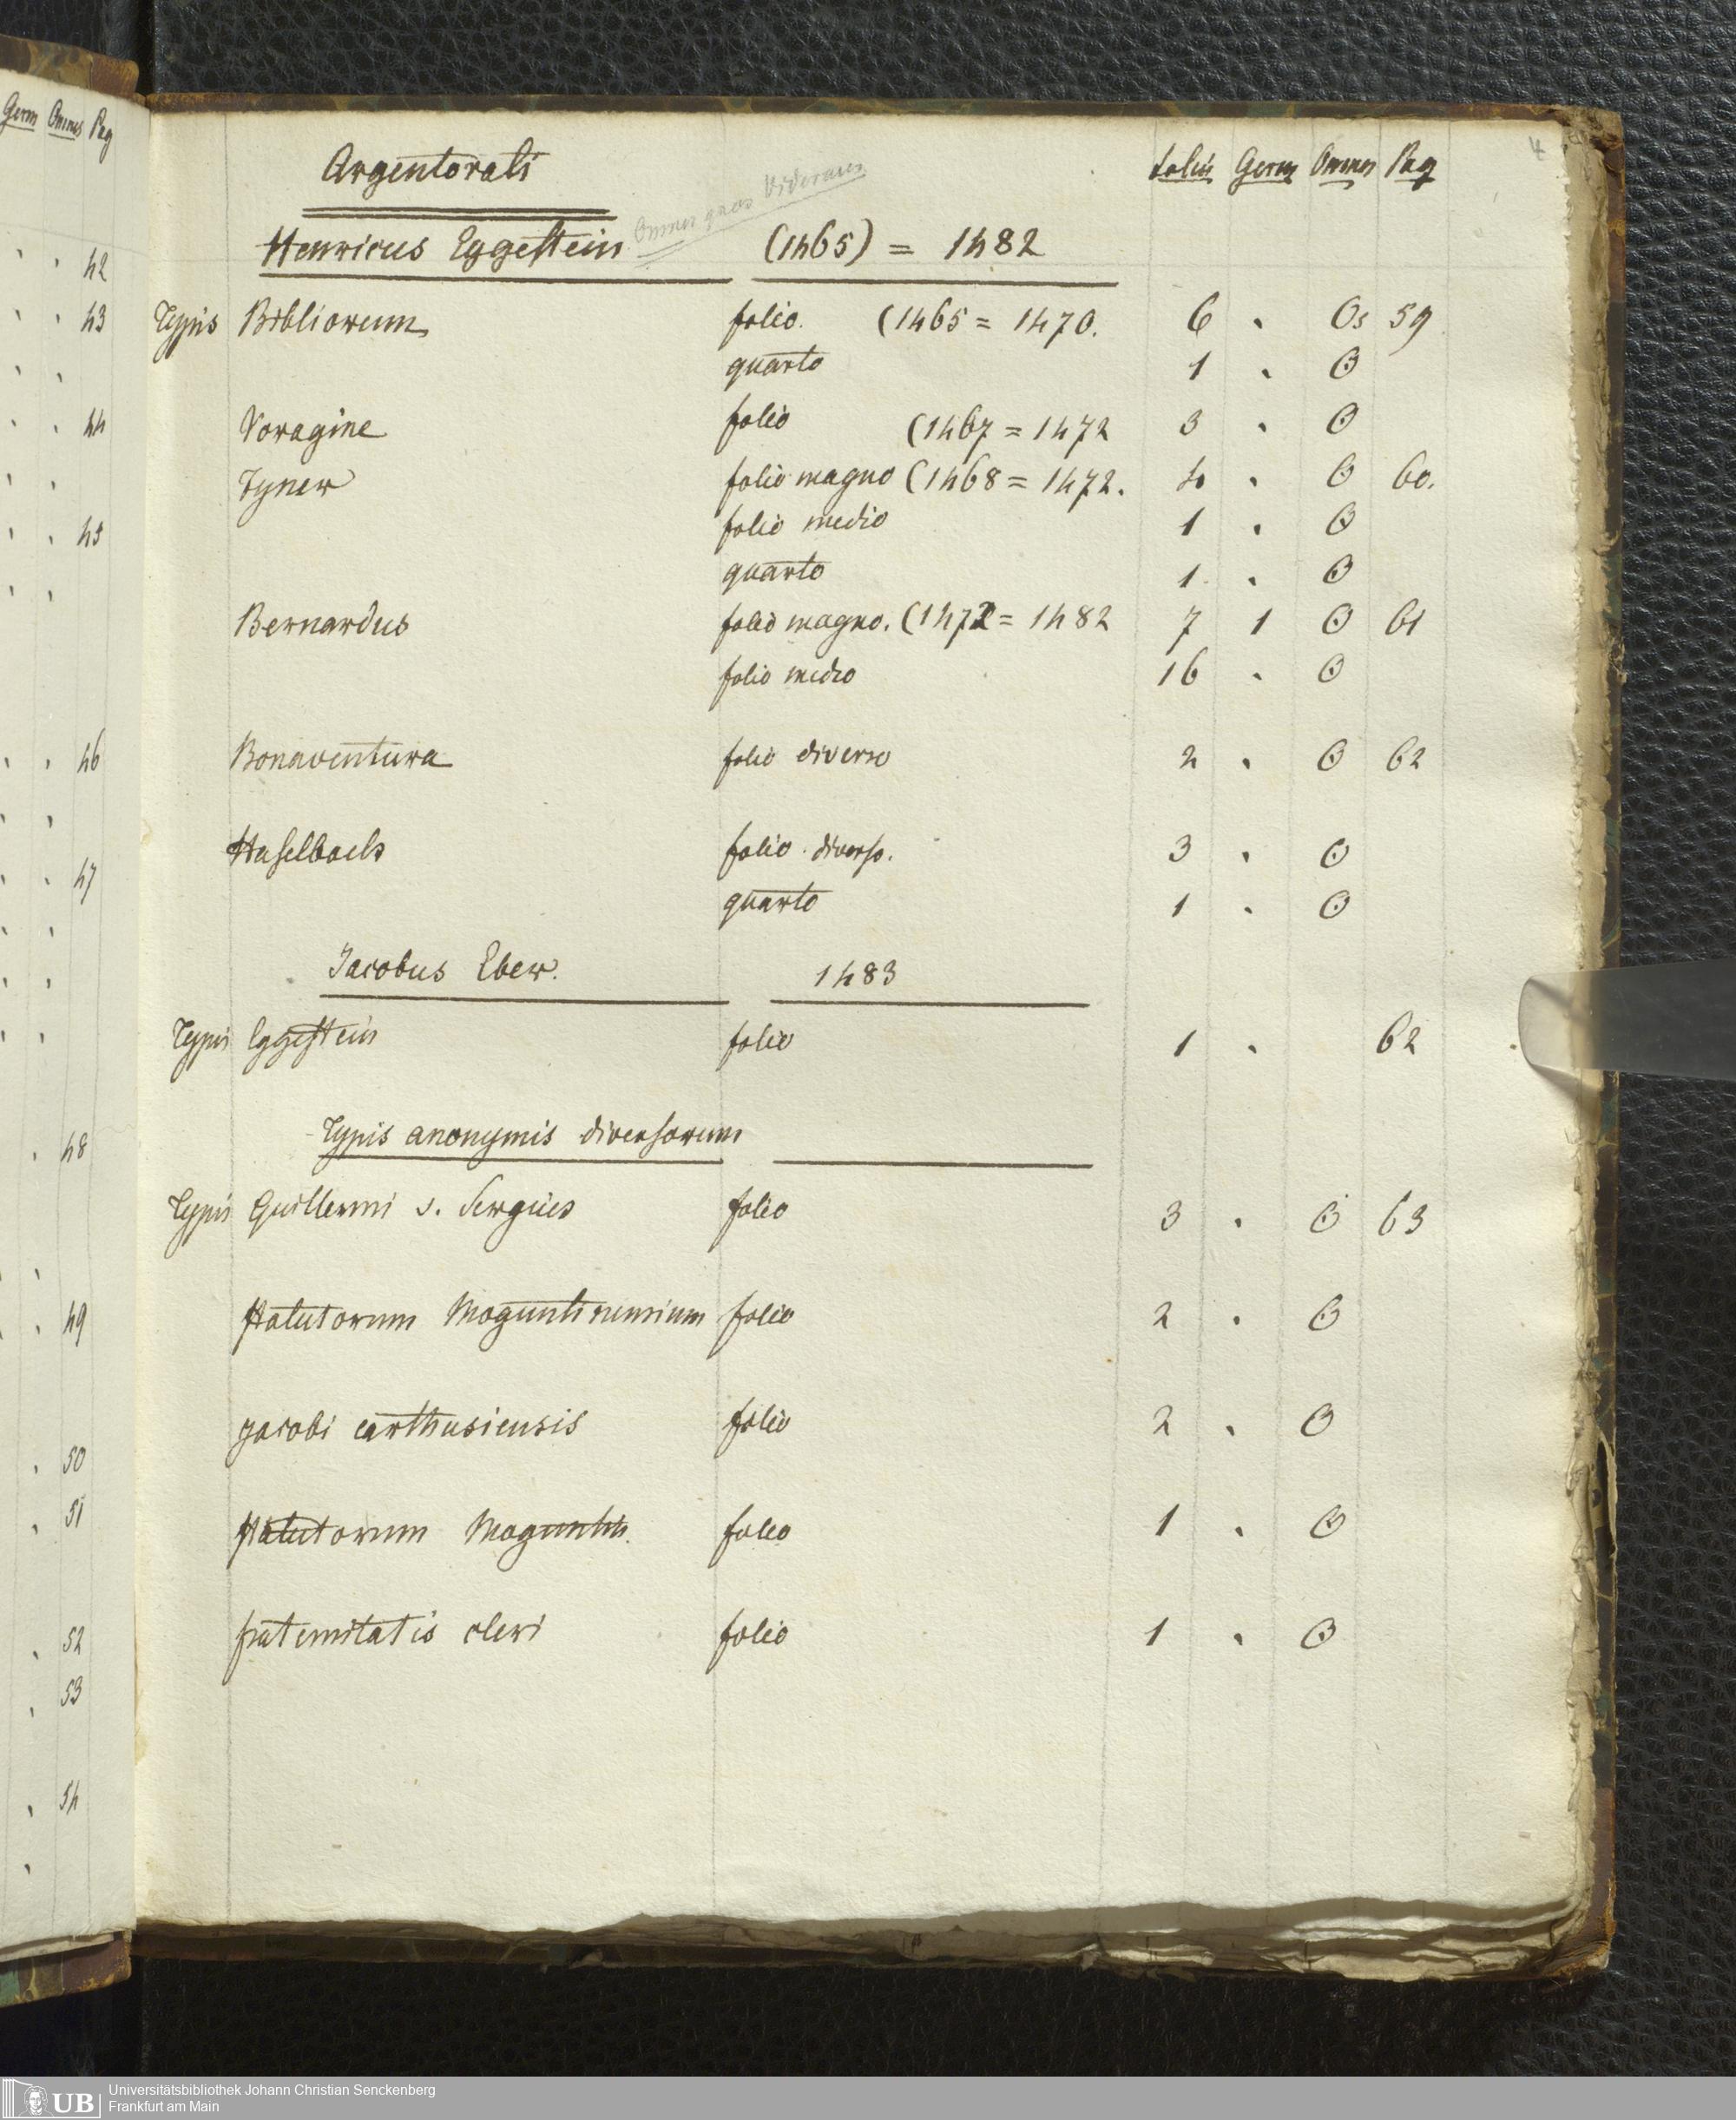 Germ Omnes Pag
42
43
44
45
46
47
48
49
50
51
52
53
54
4
Argentorati
Latin Germ Omnes Pag
Omnes quas vidimus
Henricus Eggestein (1465) = 1482
Typis Bibliorum folio. (1465 = 1470. 6 . Os 59
quarto 1 . O
Voragine folio (1467 = 1472 3 . O
Zyner folio magno (1468 = 1472. 4 . O 60.
folio medio 1 . O
quarto 1 . O
Bernardus folio magno. (1472 = 1482 7 1 O 61
folio medio 16 . O
Bonaventura folio diverso 2 . O 62
Haselbach folio diverso. 3 . O
quarto 1 . O
Jacobus Eber. 1483
Typis Eggestein folio 1 . 62
Typis anonymis diversorum
Typis Guillermi s. Sergii folio 3 . O 63
statutorum Moguntinensium folio 2 . O
jacobi carthusiensis folio 2 . O
statutorum Moguntin. folio 1 . O
fraternitatis cleri folio 1 . O
UB Universitätsbibliothek Johann Christian Senckenberg
Frankfurt am Main